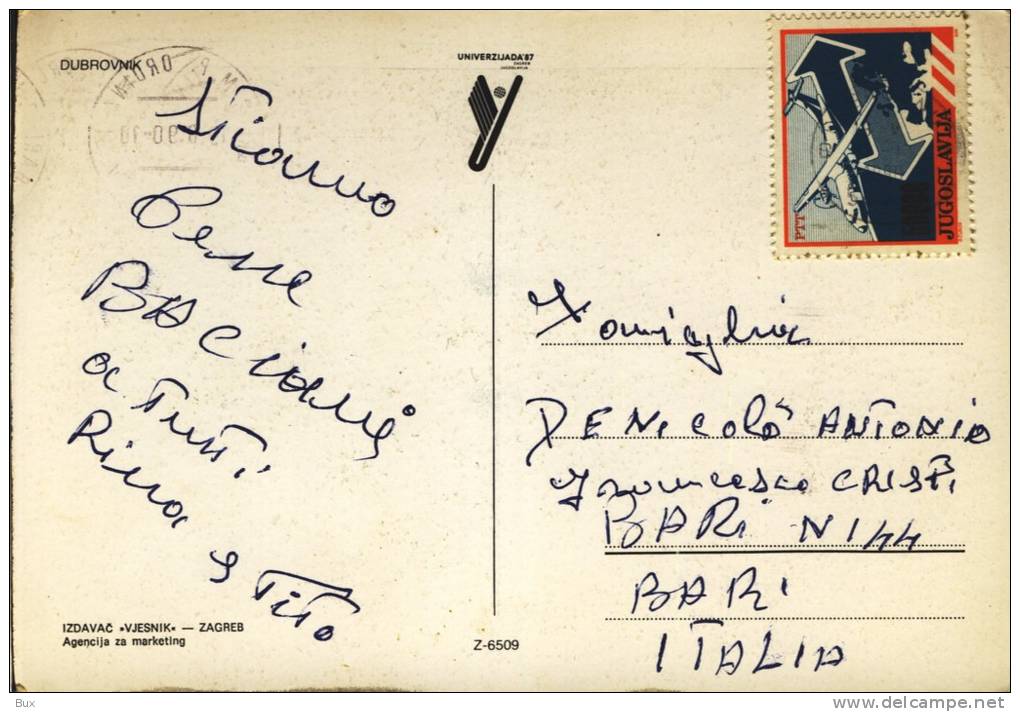 DUBROVNIK
UNIVERZIJADA'87
ZAGREB
JUGOSLAVIJA
PTT
JUGOSLAVIJA
Stiamo
Bene
BACioni
a Tutti
Rina e Tito
Famiglia
DENicolò ANTONIO
Francesco CRISPi
BARi N 144
BARi
ITALIA
IZDAVAČ »VJESNIK« — ZAGREB
Agencija za marketing
Z-6509
Bux
delcampe.net